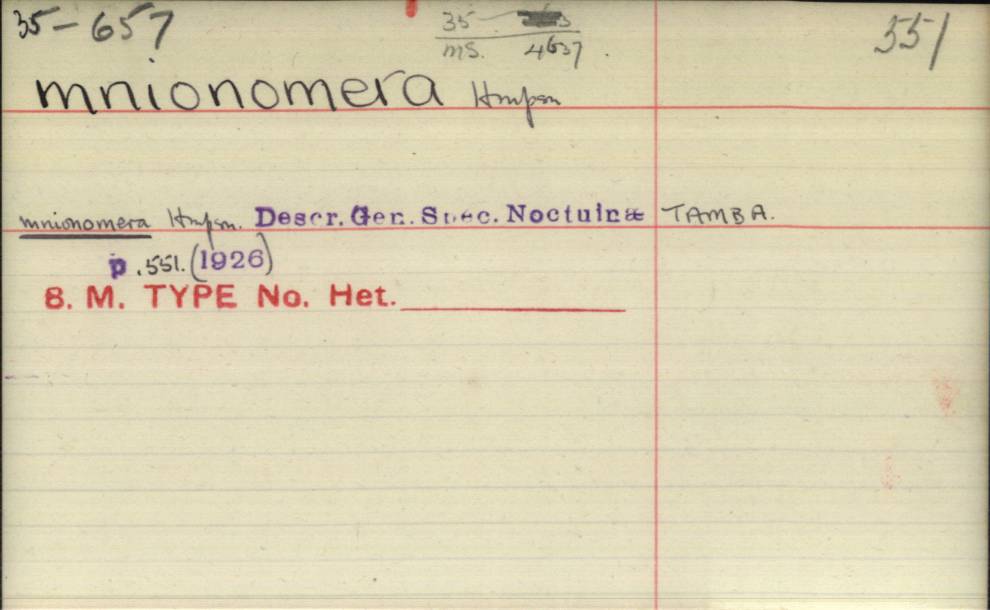 35-657
35
ms. 4637.
551
mnionomera Hmpsn
mnionomera Hmpsn. Descr. Gen. Spec. Noctuinæ TAMBA.
p. 551. (1926)
B. M. TYPE No. Het.